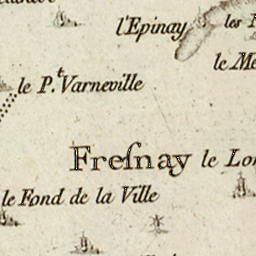 l'Epinay les
le P.t Varneville
Freſnay le Lon
le Fond de la Ville